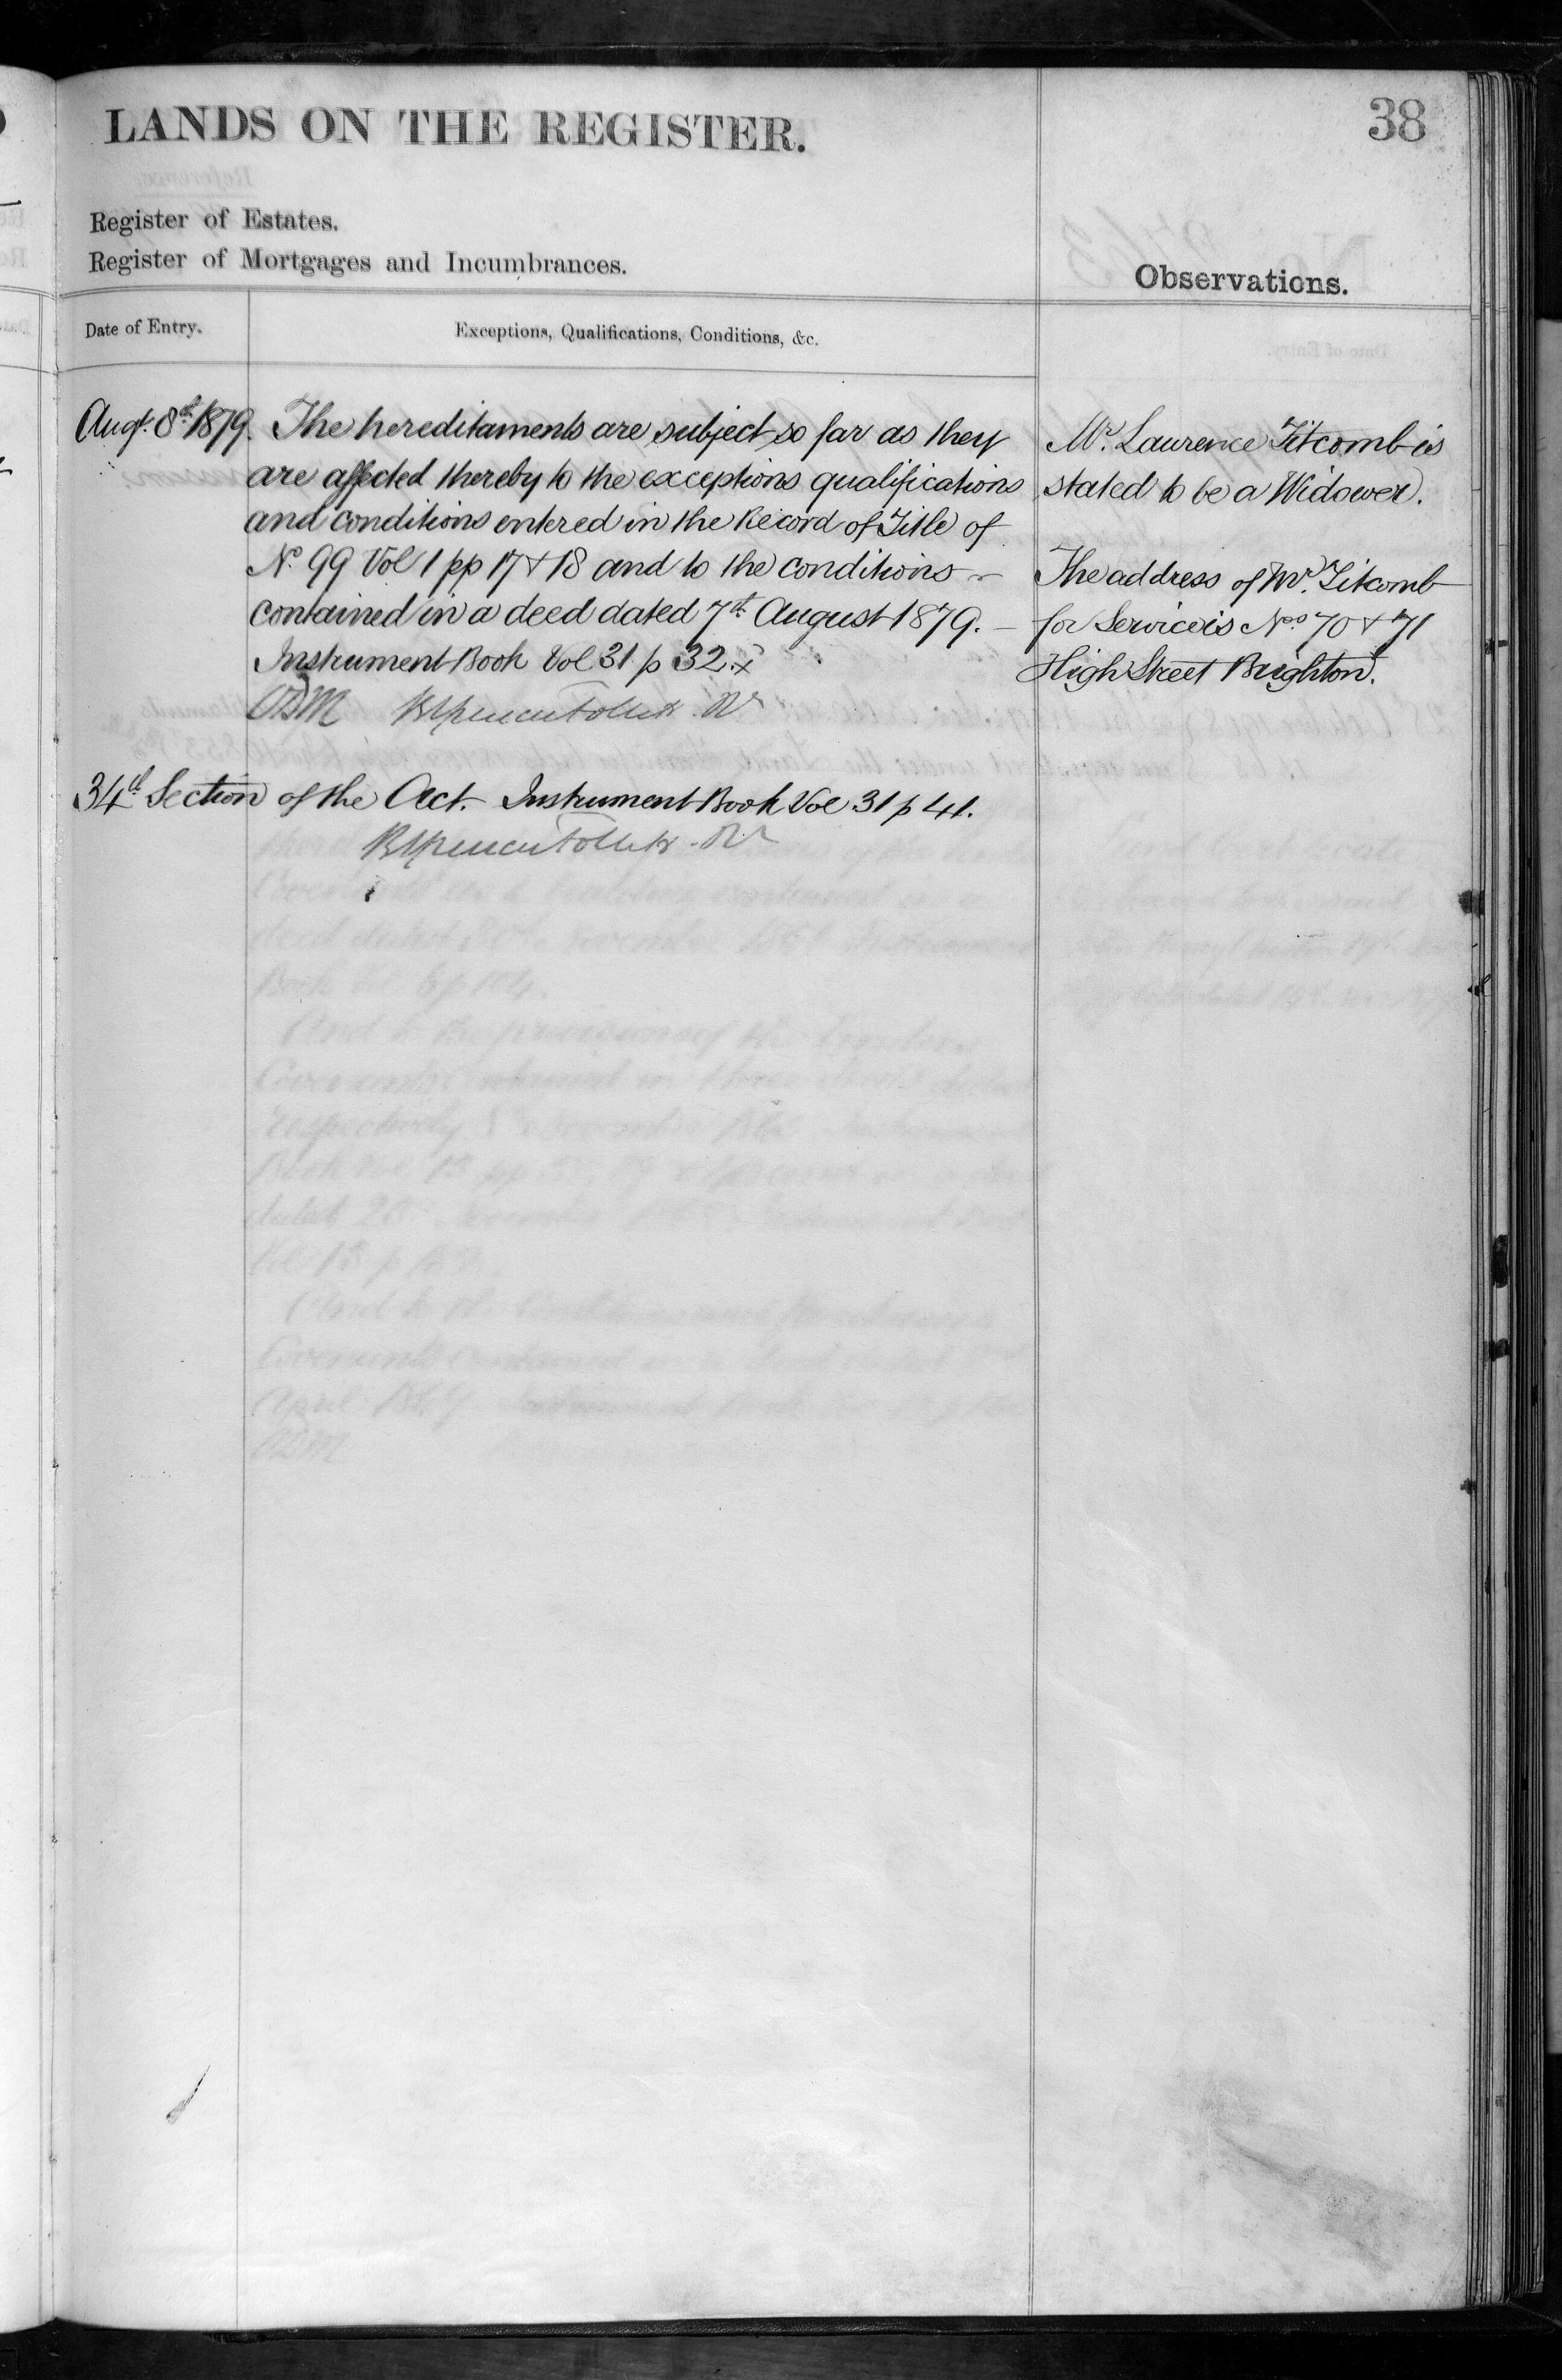 LANDS ON THE REGISTER.
38
Register of Estates.
Register of Mortgages and Incumbrances.
Observations.
Date of Entry.
Exceptions, Qualifications, Conditions, &c.
Augt. 8th 1879.
The hereditaments are subject so far as they
are affected thereby to the exceptions qualifications
and conditions entered in the Record of Title of
No. 99 Vol 1 pp 17 & 18 and to the conditions
contained in a deed dated 7th August 1879.
Instrument Book Vol 31 p 32.
34th Section of the Act. Instrument Book Vol 31 p 41.
Mr. Laurence Titcomb is
stated to be a Widower.
The address of Mr. Titcomb
for Service is Nos 70 & 71
High Street Brighton.